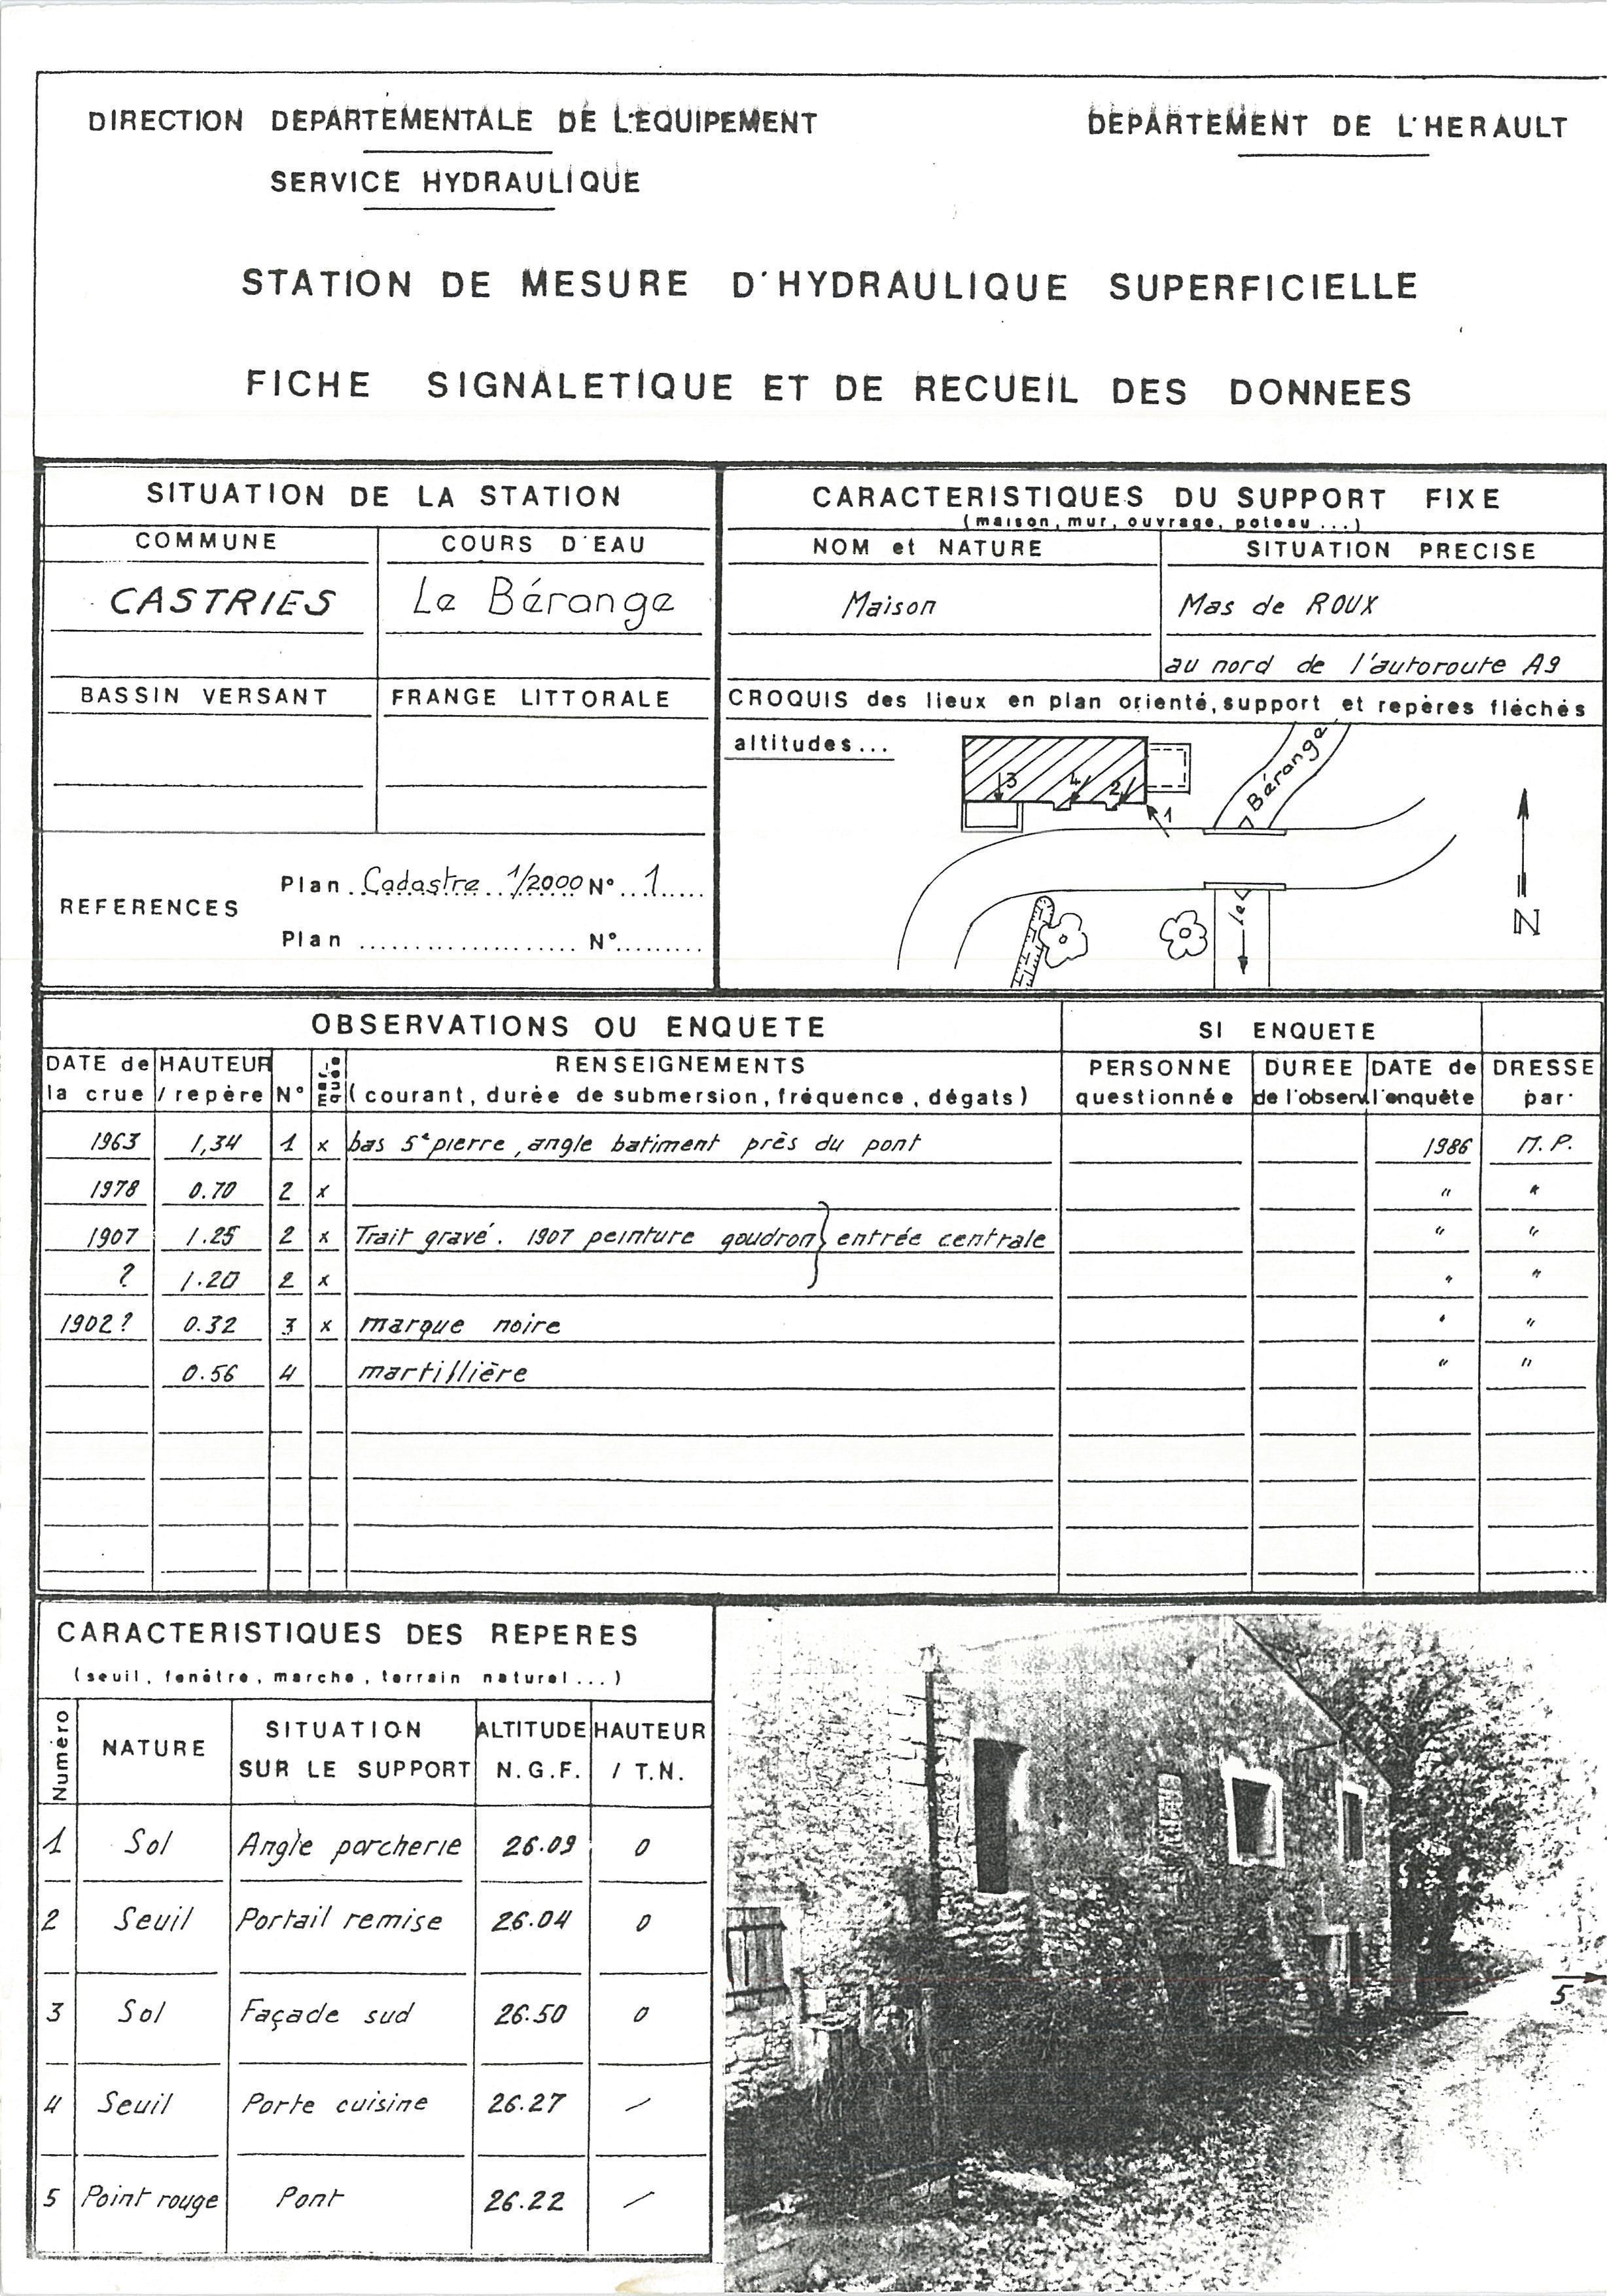 DIRECTION DEPARTEMENTALE DE L'EQUIPEMENT
DEPARTEMENT DE L'HERAULT
SERVICE HYDRAULIQUE
STATION DE MESURE D'HYDRAULIQUE SUPERFICIELLE
FICHE SIGNALETIQUE ET DE RECUEIL DES DONNEES
SITUATION DE LA STATION
COMMUNE COURS D'EAU
CASTRIES Le Bérange
BASSIN VERSANT FRANGE LITTORALE
REFERENCES
Plan Cadastre 1/2000 N° 1
Plan .................... N°.........
CARACTERISTIQUES DU SUPPORT FIXE
(maison, mur, ouvrage, poteau...)
NOM et NATURE SITUATION PRECISE
Maison Mas de ROUX
au nord de l'autoroute A9
CROQUIS des lieux en plan orienté, support et repères fléchés
altitudes...
Bérange
3 4 2
1
le
N
OBSERVATIONS OU ENQUETE SI ENQUETE
DATE de la crue HAUTEUR / repère N° RENSEIGNEMENTS (courant, durée de submersion, fréquence, dégats) PERSONNE questionnée DUREE de l'observ. DATE de l'enquête DRESSE par
1963 1,34 1 x bas 5e pierre, angle batiment près du pont 1986 M. P.
1978 0.70 2 x " "
1907 1.25 2 x Trait gravé. 1907 peinture goudron } entrée centrale " "
? 1.20 2 x " "
1902? 0.32 3 x marque noire " "
0.56 4 martillière " "
CARACTERISTIQUES DES REPERES
(seuil, fenêtre, marche, terrain naturel...)
Numéro NATURE SITUATION SUR LE SUPPORT ALTITUDE N.G.F. HAUTEUR / T.N.
1 Sol Angle porcherie 26.09 0
2 Seuil Portail remise 26.04 0
3 Sol Façade sud 26.50 0
4 Seuil Porte cuisine 26.27 /
5 Point rouge Pont 26.22 /
5